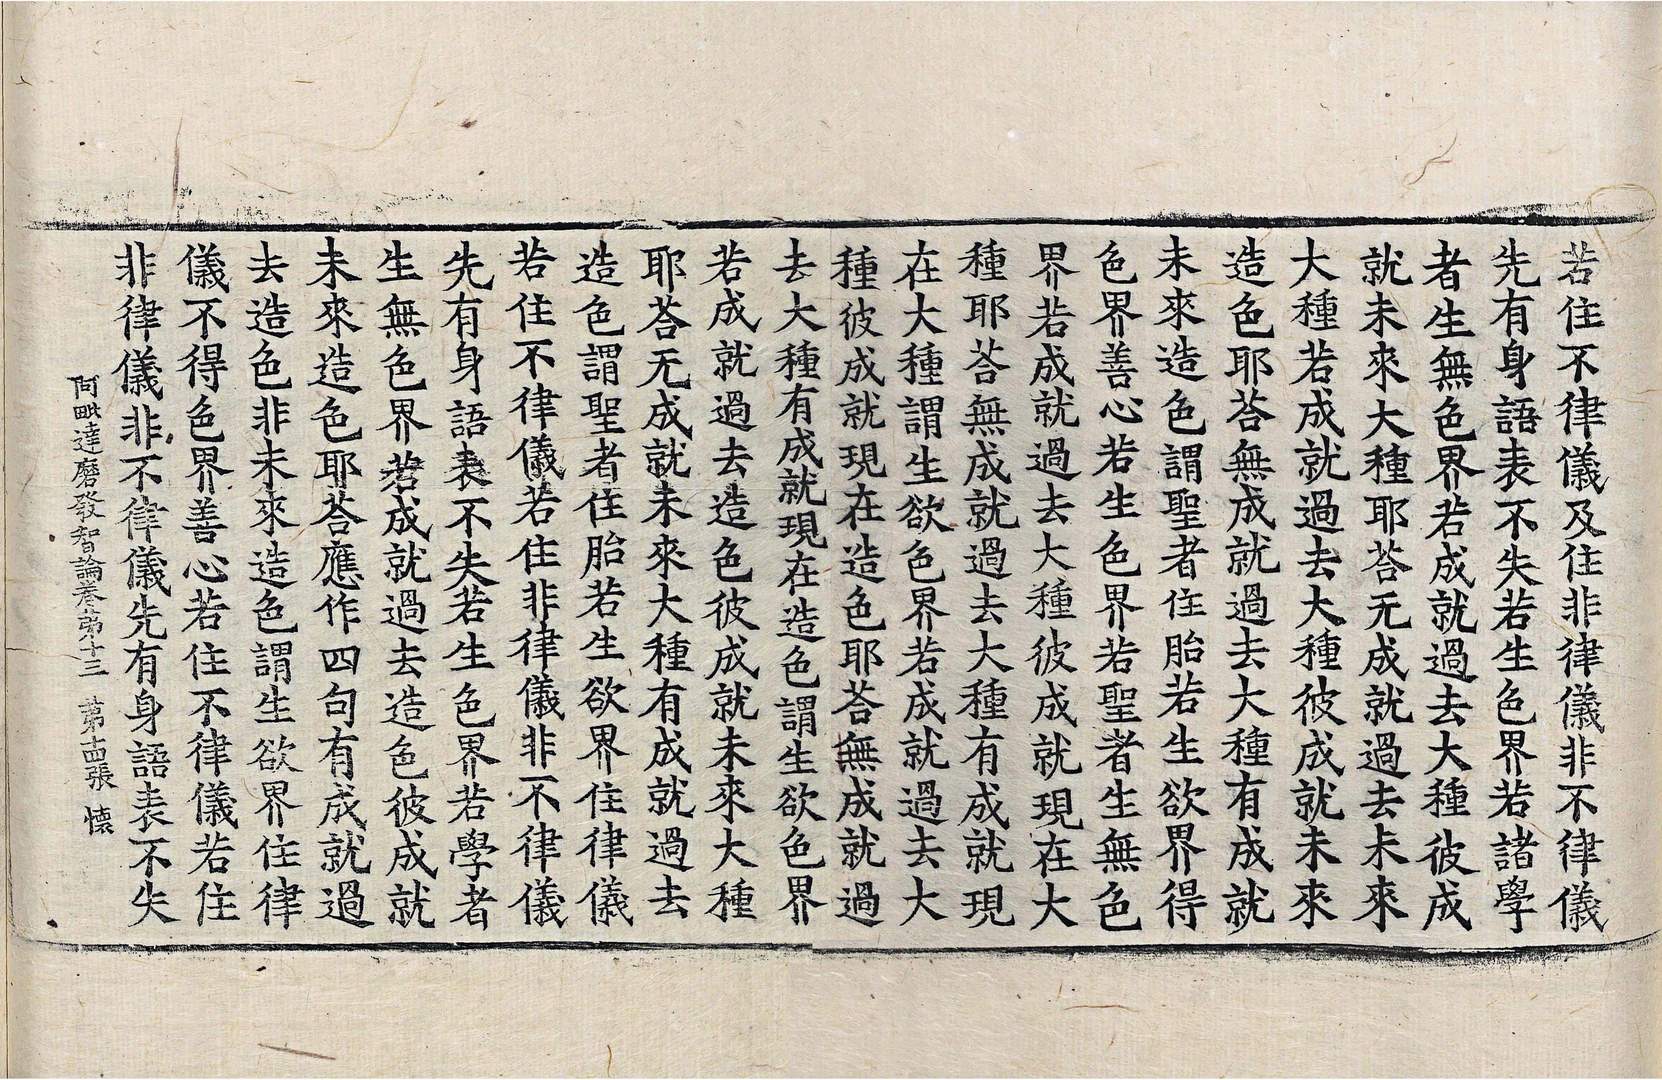 若住不律儀及住非律儀非不律儀
先有身語表不失若生色界若諸學
者生無色界若成就過去大種彼成
就未來大種耶荅无成就過去未來
大種若成就過去大種彼成就未來
造色耶荅無成就過去大種有成就
未來造色謂聖者住胎若生欲界得
色界善心若生色界若聖者生無色
界若成就過去大種彼成就現在大
種耶荅無成就過去大種有成就現
在大種謂生欲色界若成就過去大
種彼成就現在造色耶荅無成就過
去大種有成就現在造色謂生欲色界
若成就過去造色彼成就未來大種
耶荅无成就未來大種有成就過去
造色謂聖者住胎若生欲界住律儀
若住不律儀若住非律儀非不律儀
先有身語表不失若生色界若學者
生無色界若成就過去造色彼成就
未來造色耶荅應作四句有成就過
去造色非未來造色謂生欲界住律
儀不得色界善心若住不律儀若住
非律儀非不律儀先有身語表不失
阿毗達磨發智論卷第十三　第十四張　懷